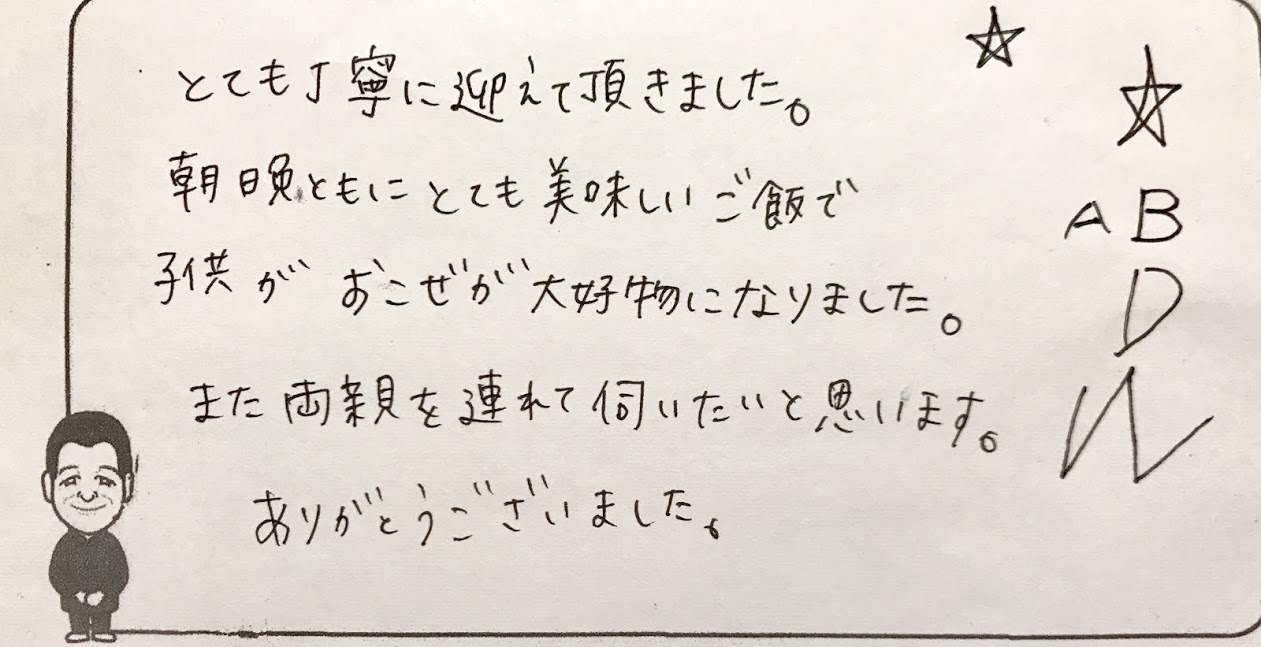 とても丁寧に迎えて頂きました。
朝晩ともにとても美味しいご飯で
子供が おこぜが大好物になりました。
また両親を連れて伺いたいと思います。
ありがとうございました。
☆
☆
AB
D
W